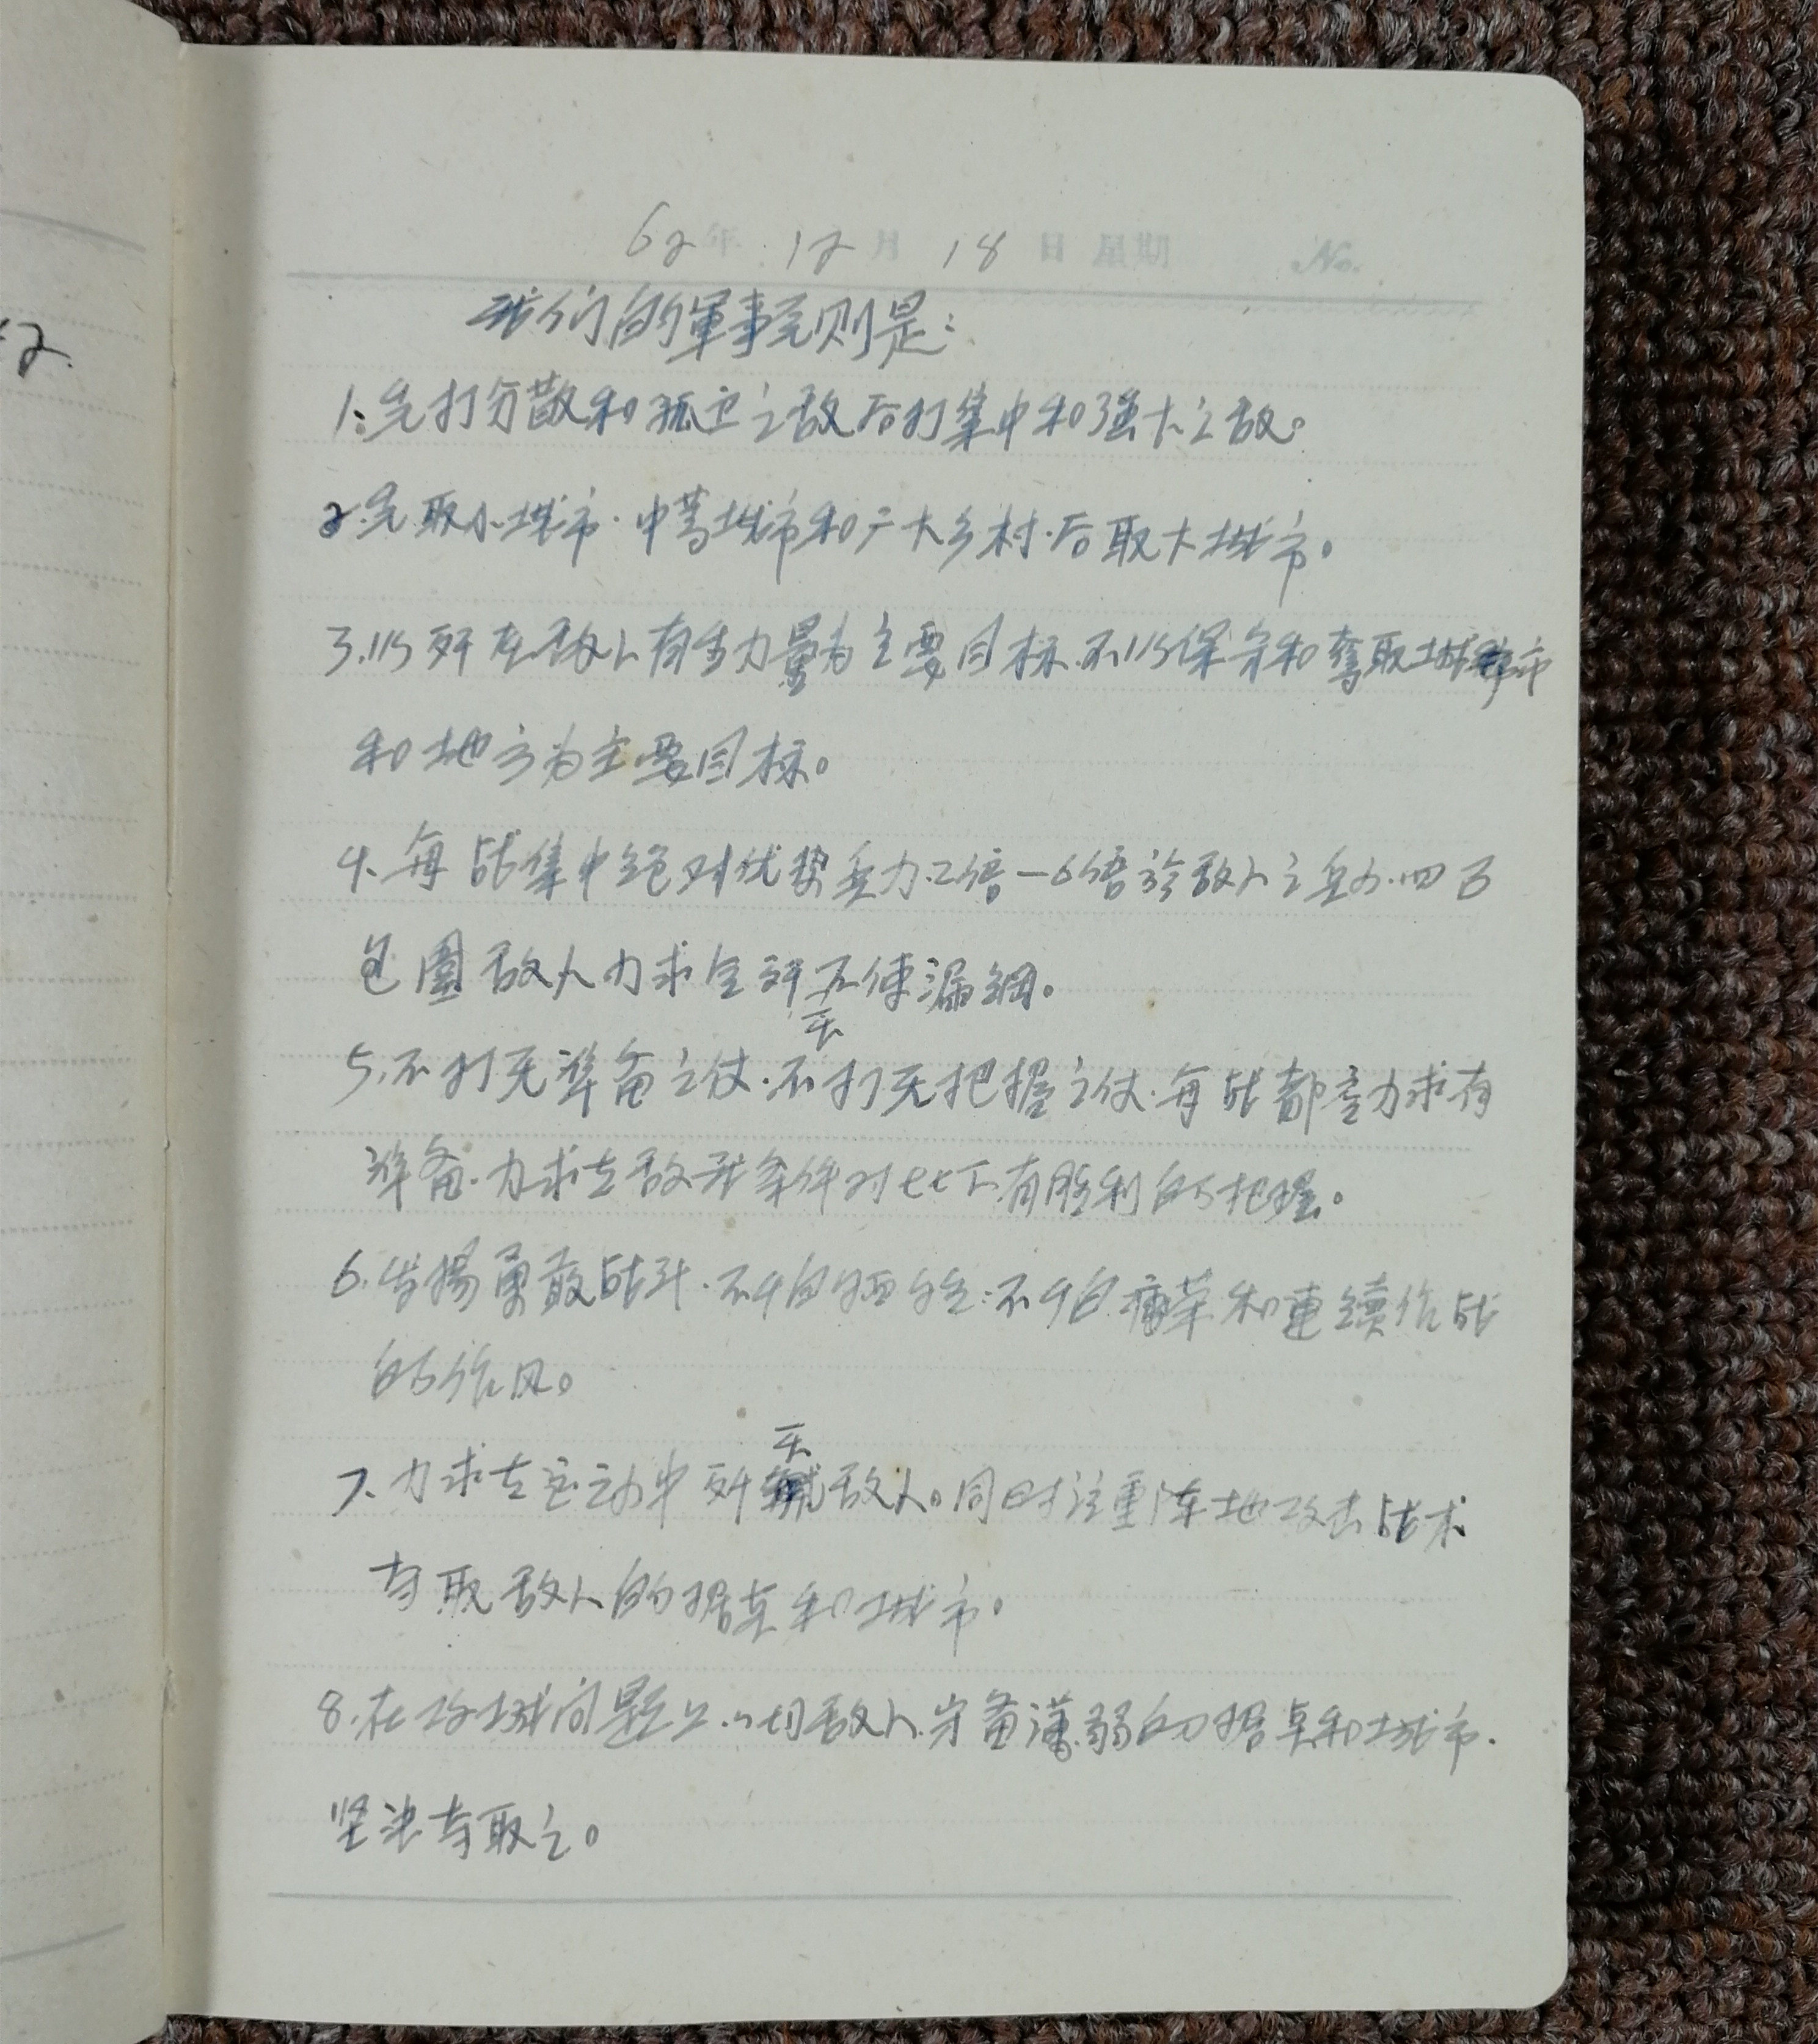 62年 12月 18日 星期 No.
我们的軍事元则是：
1. 先打分散和孤立之敌后打集中和强大之敌。
2. 先取小城市·中等城市和广大乡村·后取大城市。
3. 以歼灭敌人有生力量为主要目标·不以保守和夺取城市
和地方为主要目标。
4. 每战集中绝对优势兵力·2倍—6倍於敌人之兵力·四面
包圍敌人力求全歼不使漏網。
灭
5. 不打无準备之仗·不打无把握之仗·每战都应力求有
準备·力求在敌我条件对比下有胜利的把握。
6. 发揚勇敢战斗·不怕牺牲·不怕疲劳和連續作战
的作风。
灭
7. 力求在运动中歼敌人。同时注重阵地攻击战术
夺取敌人的据点和城市。
8. 在攻城问题上·一切敌人守备薄弱的据点和城市·
坚决夺取之。
2.